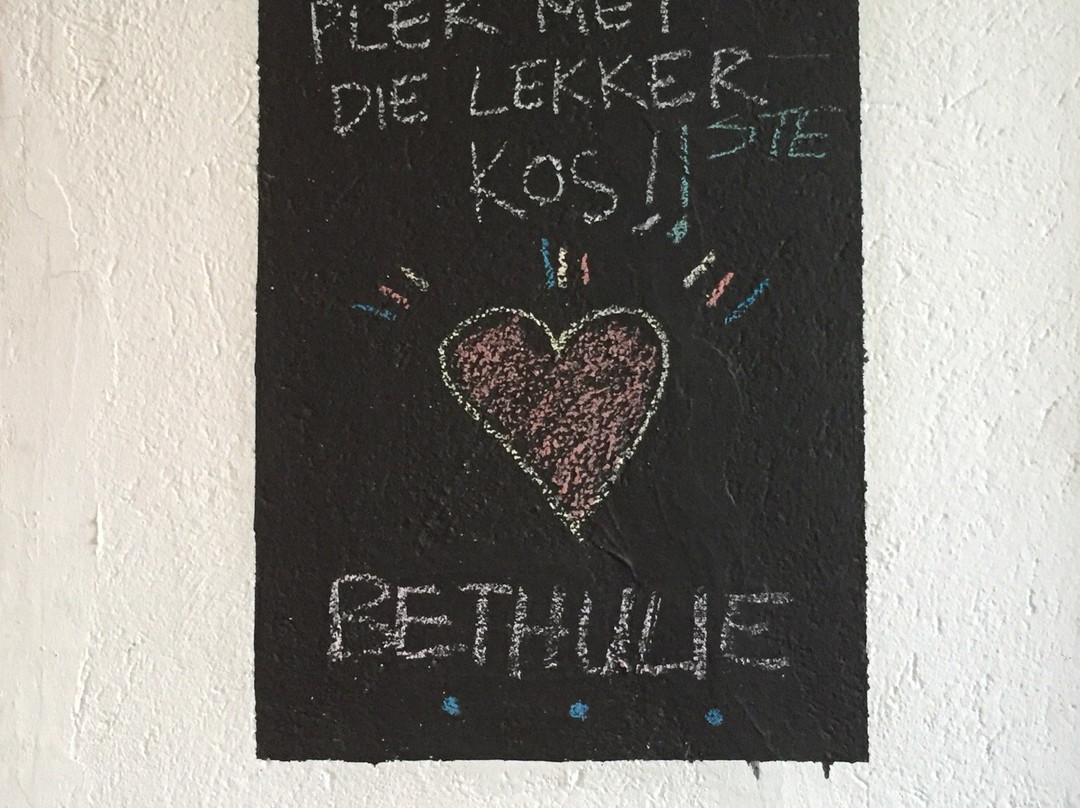 PLEK MET
DIE LEKKER-
STE
KOS!!
BETHULIE